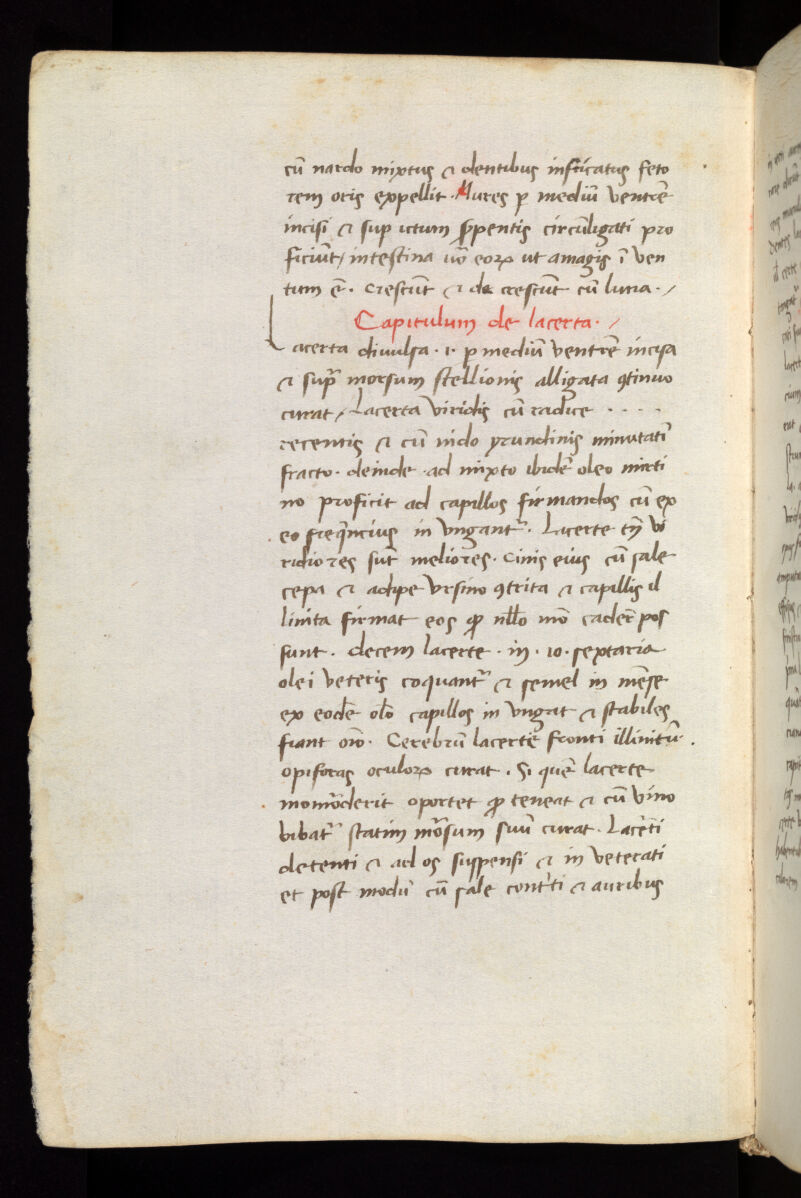 cū nardo mixtus ⁊ dentibus infricatus feto
rem oris expellit · Mures ꝑ mediū ventrē
incisi ⁊ sup ictum serpentis circūligati pro
ficiūt / intestina eoꝝ ut amagis ī ven
tum ē · crescūt ⁊ de crescūt cū luna ·/
Capitulum de lacerta ·/
Lacerta divulsa · i · ꝑ mediū ventrē incisa
⁊ supra morsum stellionis alligata ꝯtinuo
curat / Lacerta viridis cū radice · · · ·
recentis ⁊ cū nido yrundinis minutati
fracto · deinde · ad mixto ibidē oleo mirti
no proficit ad capillos firmandos cū ex
eo freqncius in vngant · Lacerte tn̄ vi
ridiores sūt meliores · Cinis eius cū sale
cepa ⁊ adipe vrsino ꝯtrita ⁊ capillis il
linita firmat eos ꝙ nllo mō caderē pos
sunt · decem lacerte · in · 10 · sextaria
olei veteris coquant ⁊ semel in mēse
ex eodē olō capillos in vngat ⁊ stabiles
fiant · Cerebrū lacerte fronti illinitū ·
opiforas oculoꝝ curat · Si quē lacerte
momorderit oportet ꝙ teneat ⁊ cū vino
bibat statim morsum suū curat · Lacerti
detenti ⁊ ad os suspensi ⁊ in veterati
et post modū cū sale contriti ⁊ auribus